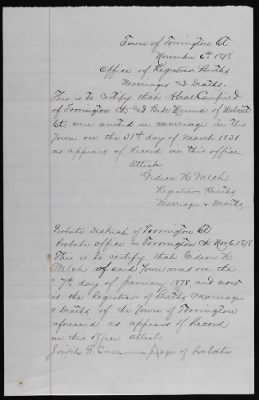 Town of Torrington Ct
November 6th 1878
Office of Registrar Births
Marriages and Deaths.
This is to certify that Heal Canfield
of Torrington Ct and of Wolcott
Ct were united in marriage in this
Town on the 31st day of March 1831
as appears of Record in this office
Attest
Gideon H Welch
Registrar Births
Marriages & Deaths
Probate District of Torrington Ct
Probate office in Torrington Ct Nov 6. 1878
This is to certify that Gideon H.
Welch of said Town was on the
7th day of January 1878 and now
is the Registrar of Births Marriage
& Deaths of the Town of Torrington
aforesaid as appears of Record
in this office attest
Joseph F. Judge of Probate